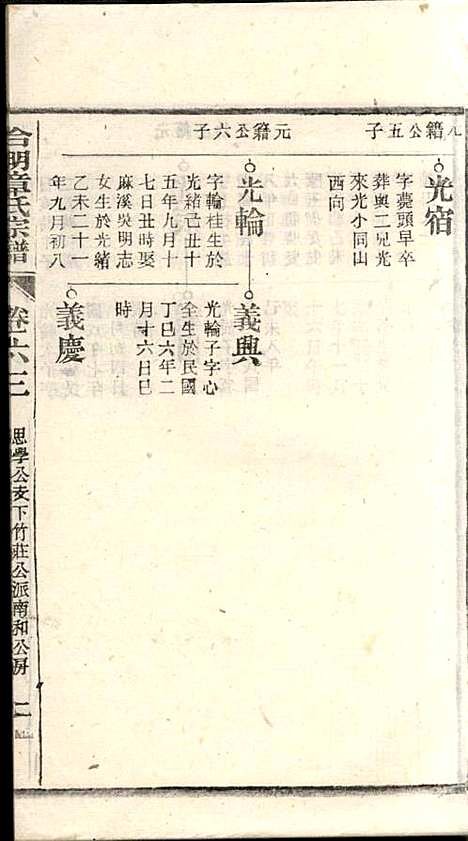 元籍公五子
光宿
字甍頭早卒
葬與二兄光
來光小同山
西向
元籍公六子
光輪
字輪桂生於
光緒己丑十
五年九月十
七日丑時娶
麻溪吳明志
女生於光緒
乙未二十一
年九月初八
義興
光輪子字心
全生於民國
丁巳六年二
月十六日巳
時
義慶
章氏宗譜
卷六三
思學公支下竹莊公派南和公房
二